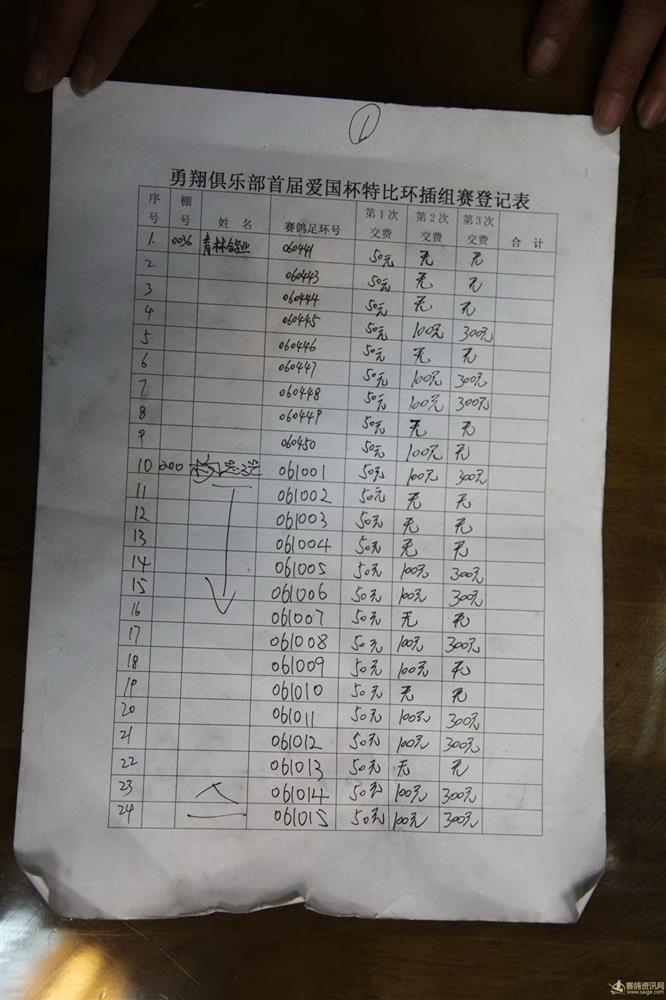 1
勇翔俱乐部首届爱国杯特比环插组赛登记表
序号 棚号 姓 名 赛鸽足环号 第1次交费 第2次交费 第3次交费 合 计
1. 0036 青林鸽业 060441 50元 无 无
2 060443 50元 无 无
3 060444 50元 无 无
4 060445 50元 100元 300元
5 060446 50元 无 无
6 060447 50元 100元 300元
7 060448 50元 100元 300元
8 060449 50元 无 无
9 060450 50元 100元 无
10 200 061001 50元 100元 300元
11 061002 50元 无 无
12 061003 50元 无 无
13 061004 50元 无 无
14 061005 50元 100元 300元
15 061006 50元 100元 300元
16 061007 50元 无 无
17 061008 50元 100元 300元
18 061009 50元 100元 无
19 061010 50元 无 无
20 061011 50元 100元 300元
21 061012 50元 100元 300元
22 061013 50元 无 无
23 061014 50元 100元 300元
24 061015 50元 100元 300元
赛鸽资讯网
www.saige.com